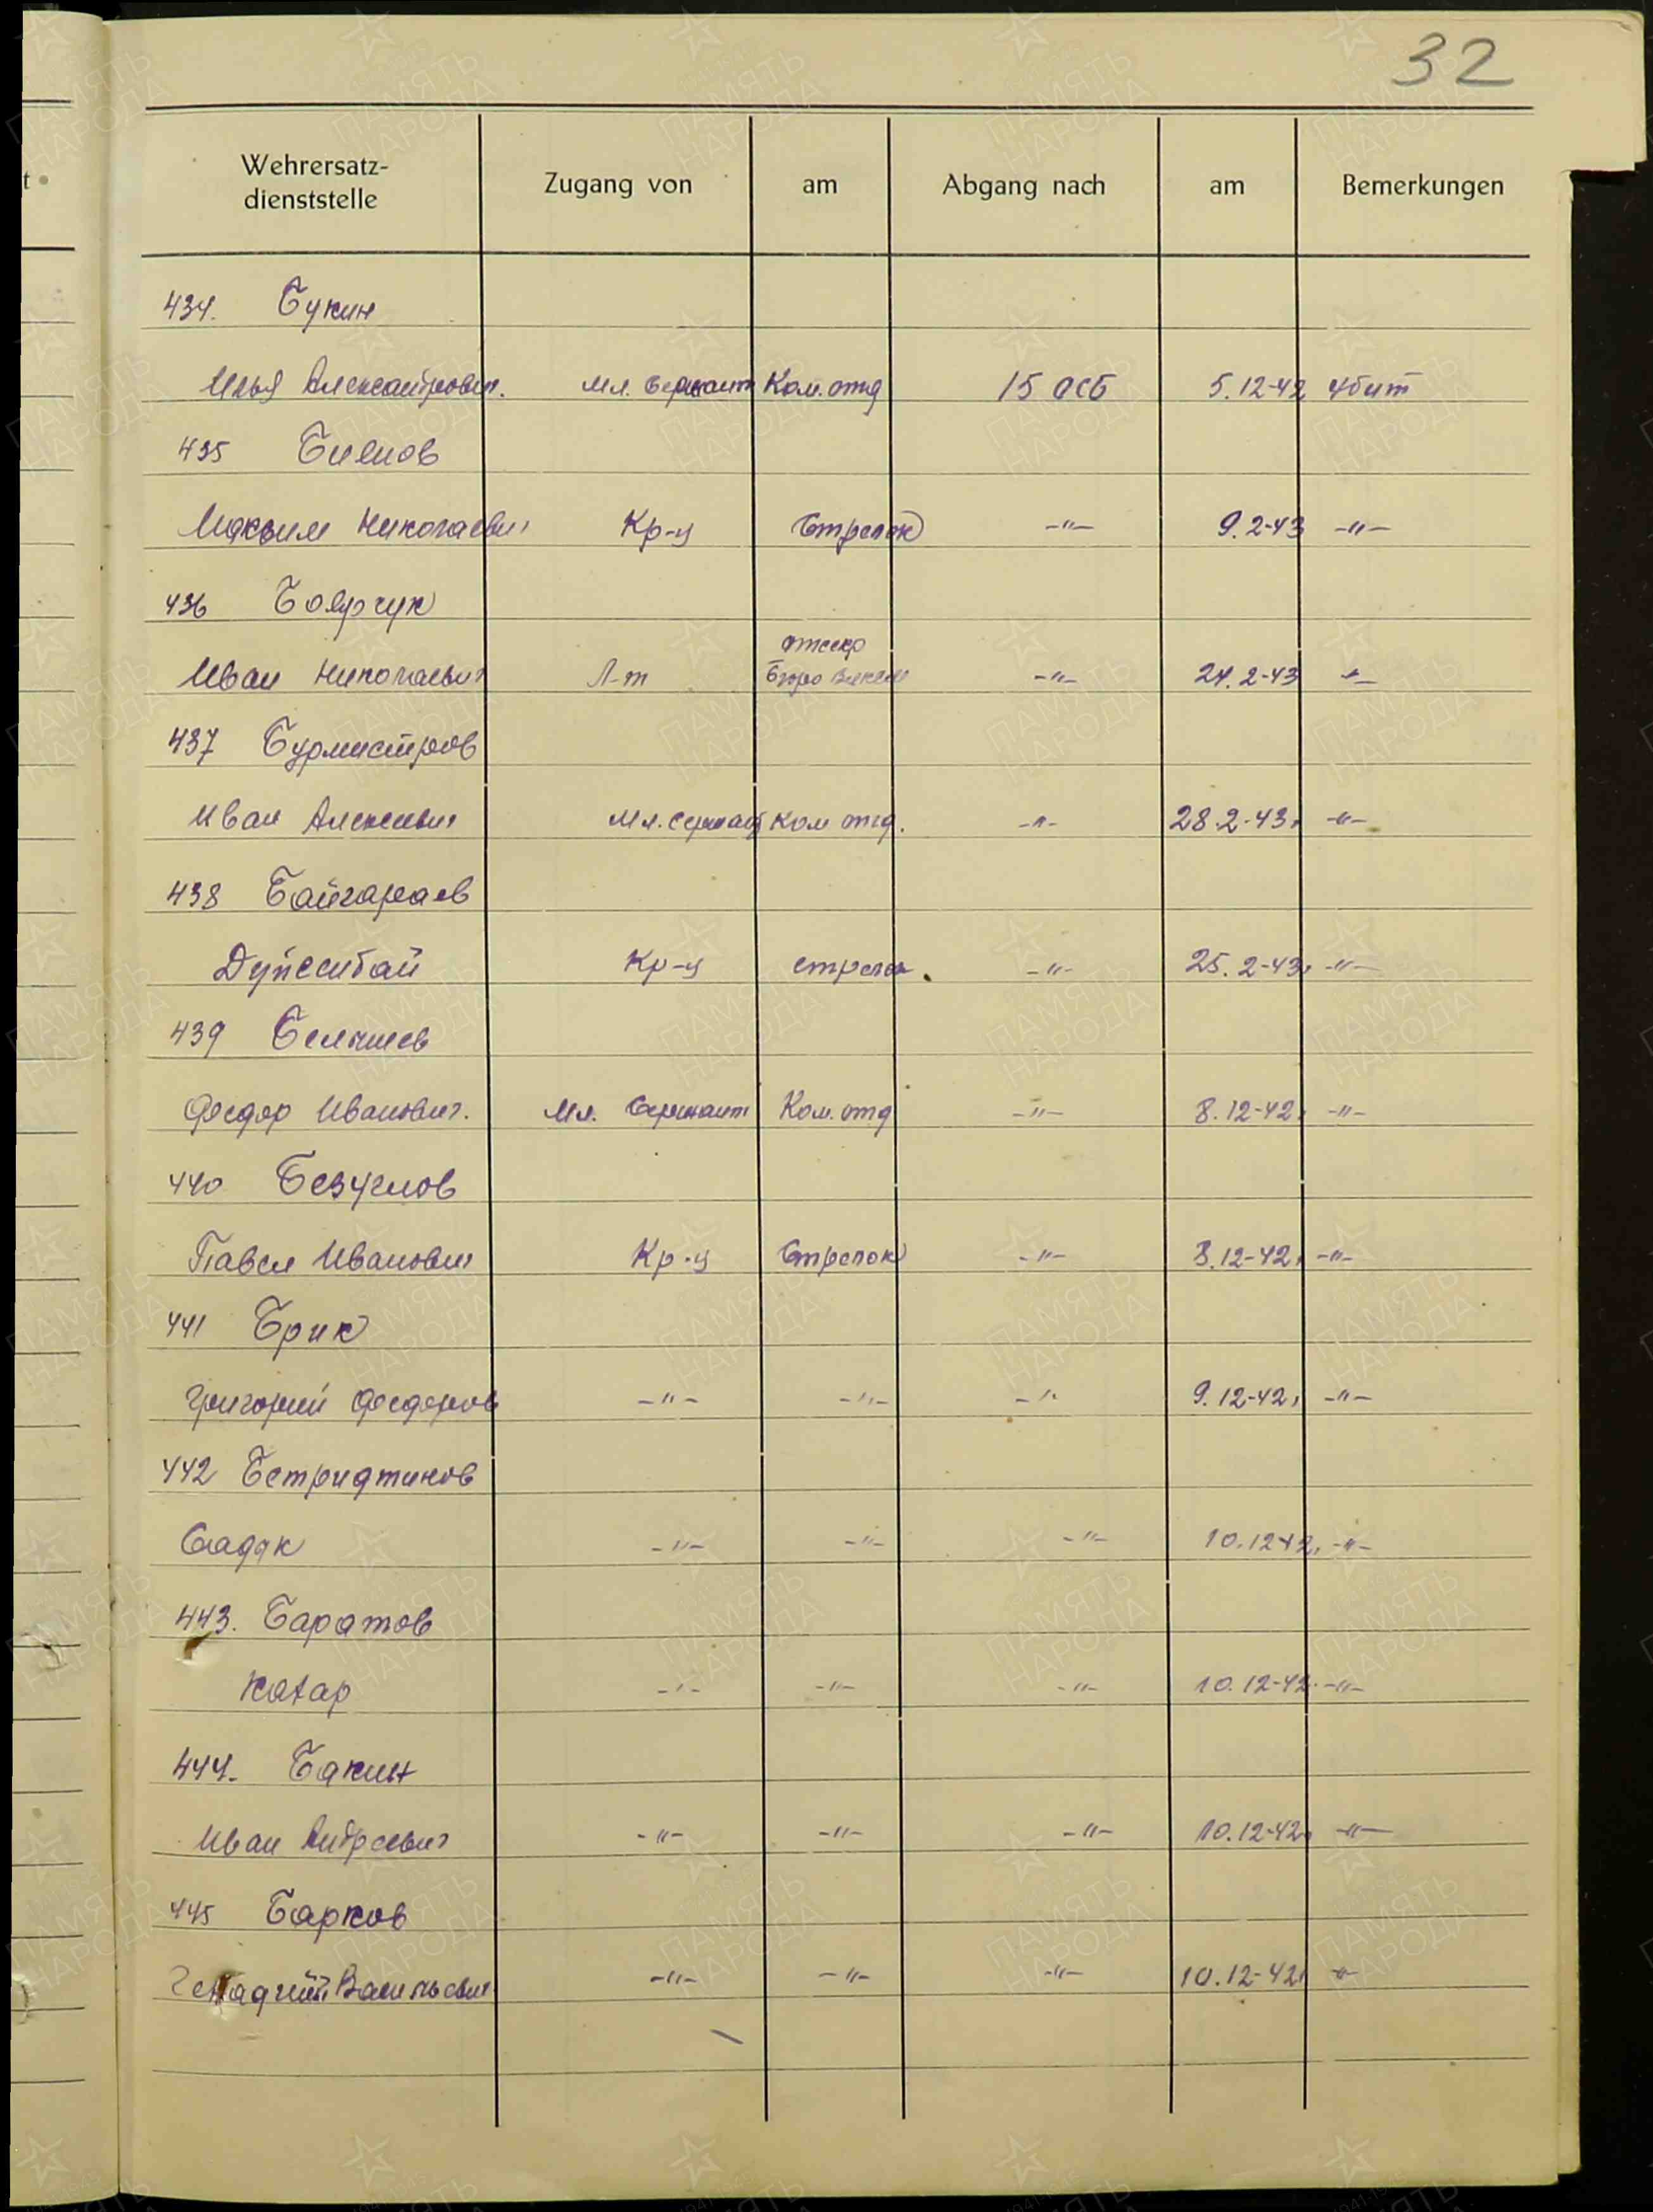 32
Wehrersatz-
dienststelle
Zugang von
am
Abgang nach
am
Bemerkungen
434. Букин
Илья Александрович. Мл. Сержант Ком. отд 15 осб 5.12-42 Убит
435
Максим Николаевич Кр-ц Стрелок -"- 9.2-43 -"-
436 Боярчук
отсекр
Иван Николаевич Л-т Бюро -"- 24.2-43 -"-
437 Бурмистров
Иван Алексеевич Мл. Сержант Ком отд. -"- 28.2-43. -"-
438 Байгараев
Дуйсенбай Кр-ц стрелок. -"- 25.2-43. -"-
439
Федор Иванович. Мл. Сержант Ком. отд -"- 8.12-42. -"-
440 Безуглов
Павел Иванович Кр-ц Стрелок -"- 8.12-42. -"-
441 Брик
Григорий Федоров -"- -"- -"- 9.12-42. -"-
442
Садак -"- -"- -"- 10.12-42. -"-
443. Баратов
-"- -"- -"- 10.12-42. -"-
444. Бакин
Иван Андреевич -"- -"- -"- 10.12-42. -"-
445 Барков
Генадий Васильевич -"- -"- -"- 10.12-42. -"-